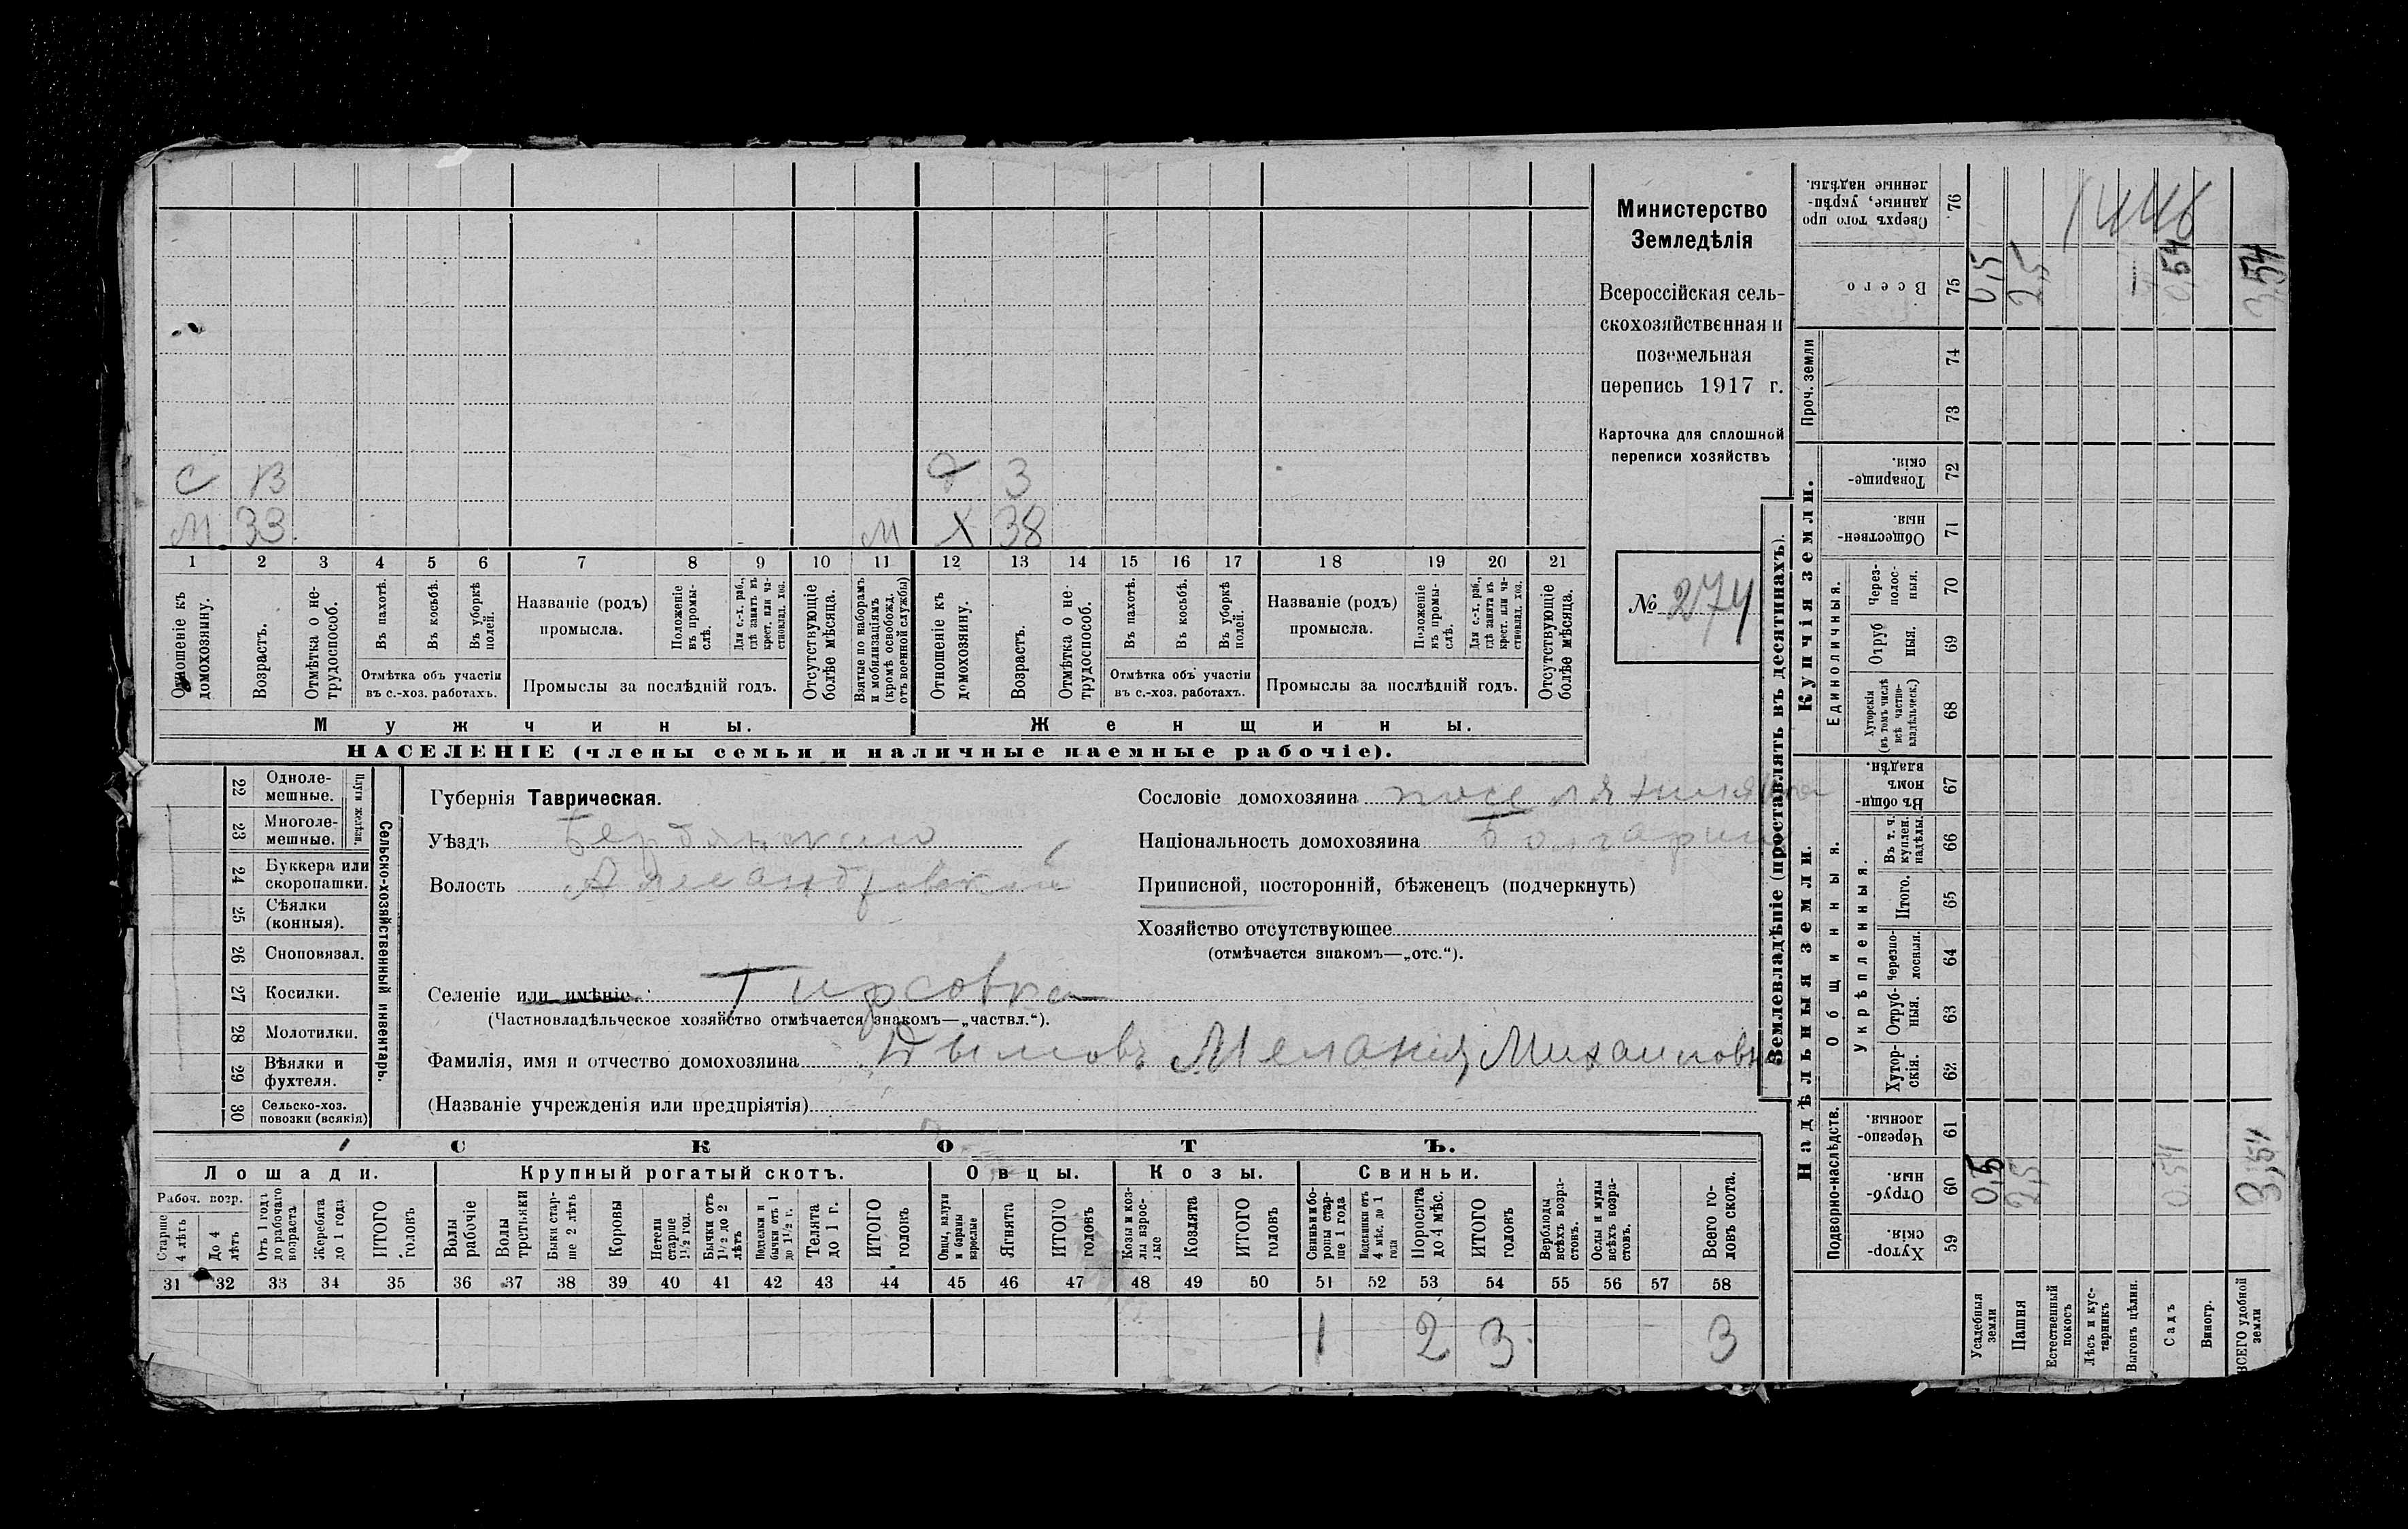 Министерство
Земледѣлія
Всероссійская сель-
скохозяйственная и
поземельная
перепись 1917 г.
Карточка для сплошной
переписи хозяйствъ
№ 274
С 13
З
М 33
М Х 38
1 2 3 4 5 6 7 8 9 10 11 12 13 14 15 16 17 18 19 20 21
Отношеніе къ домохозяину.
Возрастъ.
Отмѣтка о не-трудоспособ.
Въ пахотѣ.
Въ косьбѣ.
Въ уборкѣ полей.
Отмѣтка объ участіи
въ с.-хоз. работахъ.
Названіе (родъ)
промысла.
Положеніе въ промы-слѣ.
Для с.-х. раб., гдѣ занятъ въ крест. или ча-стновлад. хоз.
Промыслы за послѣдній годъ.
Отсутствующіе болѣе мѣсяца.
Взятые по наборамъ и мобилизаціямъ (кромѣ освобожд. отъ военной службы)
Отношеніе къ домохозяину.
Возрастъ.
Отмѣтка о не-трудоспособ.
Въ пахотѣ.
Въ косьбѣ.
Въ уборкѣ полей.
Отмѣтка объ участіи
въ с.-хоз. работахъ.
Названіе (родъ)
промысла.
Положеніе въ промы-слѣ.
Для с.-х. раб., гдѣ занята въ крест. или ча-стновлад. хоз.
Промыслы за послѣдній годъ.
Отсутствующіе болѣе мѣсяца.
Мужчины.
Женщины.
НАСЕЛЕНІЕ (члены семьи и наличные наемные рабочіе).
Сельско-хозяйственный инвентарь.
Плуги желѣзн.
22 Одноле-мешные.
23 Многоле-мешные.
24 Буккера или скоропашки.
25 Сѣялки (конныя).
26 Сноповязал.
27 Косилки.
28 Молотилки.
29 Вѣялки и фухтеля.
30 Сельско-хоз. повозки (всякія)
Губернія Таврическая.
Уѣздъ Бердянскаго
Волость Александровской
Селеніе или имѣніе Тирсовка
(Частновладѣльческое хозяйство отмѣчается знакомъ—„частвл.“).
Фамилія, имя и отчество домохозяина Дымовъ Меланія Михаиловн
(Названіе учрежденія или предпріятія)
Сословіе домохозяина поселянинка
Національность домохозяина Болгарин
Приписной, посторонній, бѣженецъ (подчеркнуть)
Хозяйство отсутствующее
(отмѣчается знакомъ—„отс.“).
СКОТЪ.
Лошади.
Рабоч. возр.
Старше 4 лѣтъ
До 4 лѣтъ
Отъ 1 года до рабочаго возраста
Жеребята до 1 года
ИТОГО головъ
Крупный рогатый скотъ.
Волы рабочіе
Волы третьяки
Быки стар-ше 2 лѣтъ
Коровы
Нетели старше 1½ год.
Бычки отъ 1½ до 2 лѣтъ
Подтелки и бычки отъ 1 до 1½ г.
Телята до 1 г.
ИТОГО головъ
Овцы.
Овцы, валухи и бараны взрослые
Ягнята
ИТОГО головъ
Козы.
Козы и коз-лы взрос-лые
Козлята
ИТОГО головъ
Свиньи.
Свиньи и бо-ровы стар-ше 1 года
Подсвинки отъ 4 мѣс. до 1 года
Поросята до 4 мѣс.
ИТОГО головъ
Верблюды всѣхъ возра-стовъ.
Ослы и мулы всѣхъ возра-стовъ.
Всего го-ловъ скота.
31 32 33 34 35 36 37 38 39 40 41 42 43 44 45 46 47 48 49 50 51 52 53 54 55 56 57 58
1 2 3 3
Землевладѣніе (проставлять въ десятинахъ).
Надѣльныя земли.
Подворно-наслѣдств.
Хутор-скія. 59
Отруб-ныя. 60
Черезпо-лосныя. 61
Общинныя.
Укрѣпленныя.
Хутор-скія. 62
Отруб-ныя. 63
Черезпо-лосныя. 64
Итого. 65
Въ т. ч. куплен. надѣлы. 66
Въ общи-номъ владѣн. 67
Купчія земли.
Единоличныя.
Хуторскія (въ томъ числѣ всѣ частно-владѣльческ.) 68
Отруб ныя. 69
Через-полос-ныя. 70
Обществен-ныя. 71
Товарище-скія. 72
Проч. земли
73 74
Всего 75
Сверхъ того про данные, укрѣп-ленные надѣлы. 76
Усадебныя земли 0,5 0,5
Пашня 2,5 2,5
Естественный покосъ
Лѣсъ и кус-тарникъ
Выгонъ цѣлин.
Садъ 0,54 0,54
Виногр.
ВСЕГО удобной земли 3,54 3,54
1446